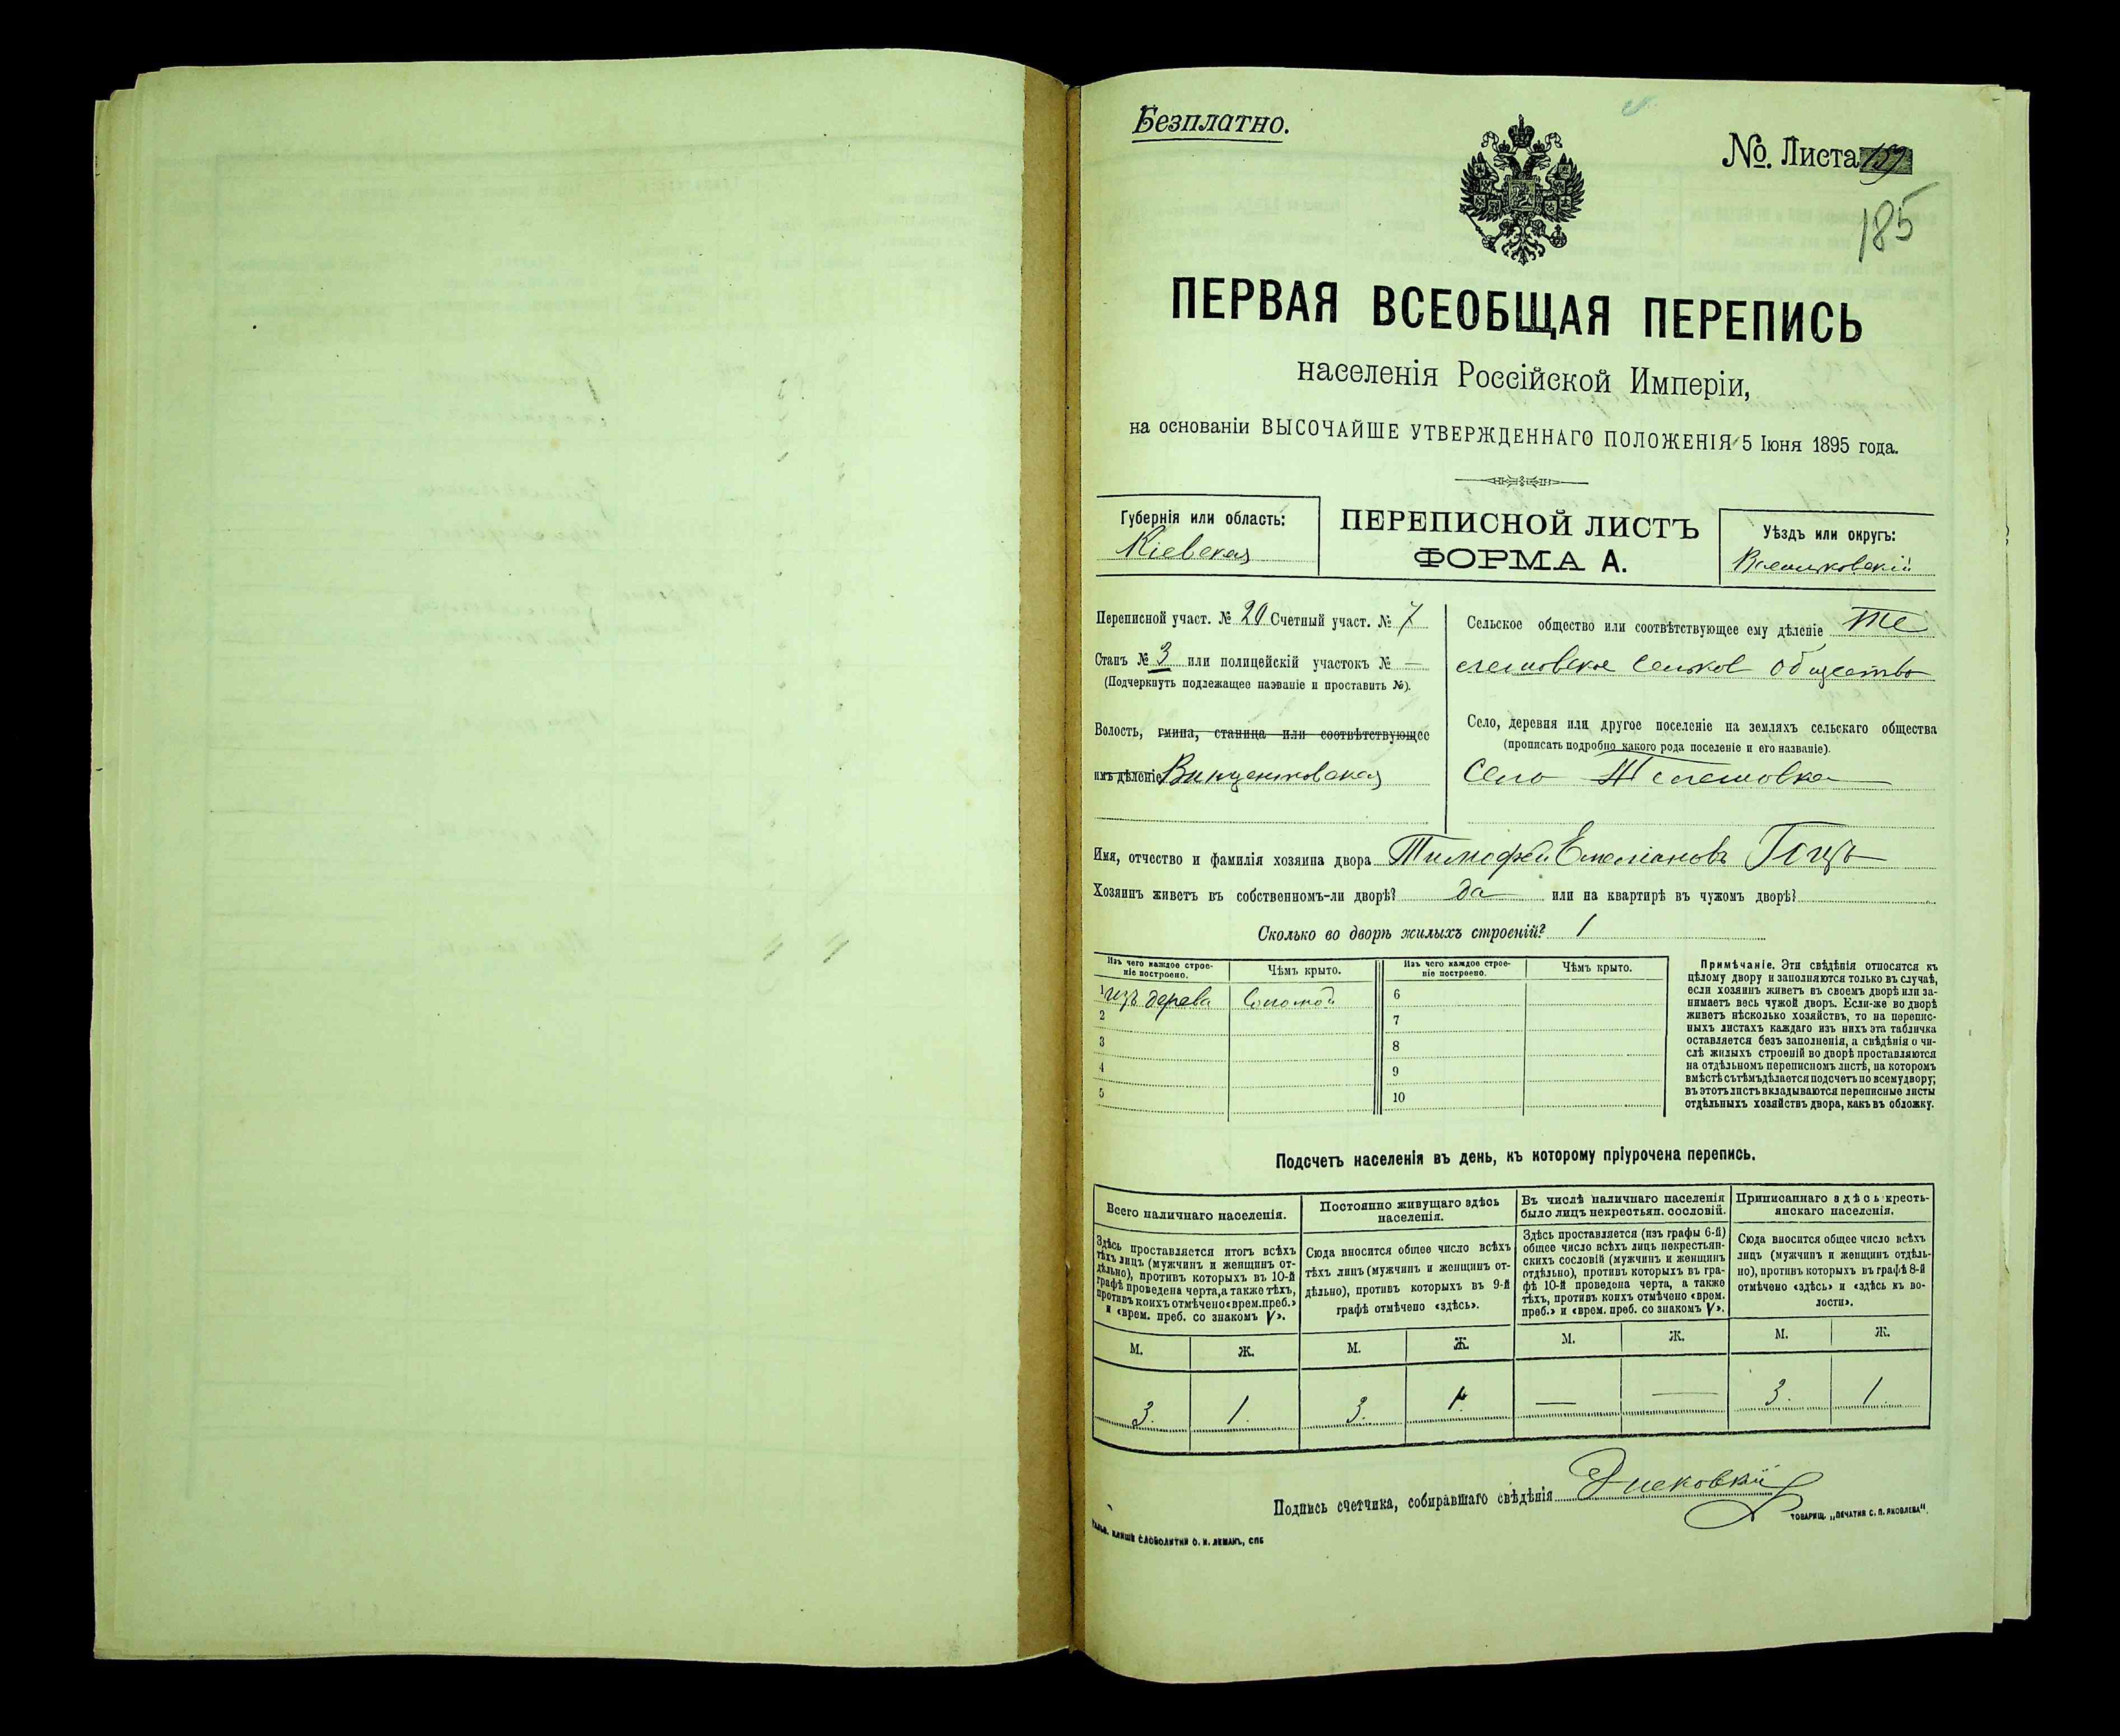 Безплатно.
№. Листа 159
185
ПЕРВАЯ ВСЕОБЩАЯ ПЕРЕПИСЬ
населенія Россійской Имперіи,
на основаніи ВЫСОЧАЙШЕ УТВЕРЖДЕННАГО ПОЛОЖЕНІЯ 5 Іюня 1895 года.
Губернія или область:
Кіевская
ПЕРЕПИСНОЙ ЛИСТЪ
ФОРМА А.
Уѣздъ или округъ:
Васильковскій
Переписной участ. № 20 Счетный участ. № 7
Станъ № 3 или полицейскій участокъ № —
(Подчеркнуть подлежащее названіе и проставить №).
Волость, гмина, станица или соотвѣтствующее
имъ дѣленіе Винцентовская
Сельское общество или соотвѣтствующее ему дѣленіе Те
лешовское Сельское Общество
Село, деревня или другое поселеніе на земляхъ сельскаго общества
(прописать подробно какого рода поселеніе и его названіе).
Село Телешовка
Имя, отчество и фамилія хозяина двора Тимофей Емеліановъ Гоцъ
Хозяинъ живетъ въ собственномъ-ли дворѣ? да или на квартирѣ въ чужомъ дворѣ?
Сколько во дворѣ жилыхъ строеній? 1
Изъ чего каждое строе-
ніе построено.
Чѣмъ крыто.
Изъ чего каждое строе-
ніе построено.
Чѣмъ крыто.
1 изъ дерева Соломой
2
3
4
5
6
7
8
9
10
Примѣчаніе. Эти свѣдѣнія относятся къ
цѣлому двору и заполняются только въ случаѣ,
если хозяинъ живетъ въ своемъ дворѣ или за-
нимаетъ весь чужой дворъ. Если-же во дворѣ
живетъ нѣсколько хозяйствъ, то на перепис-
ныхъ листахъ каждаго изъ нихъ эта табличка
оставляется безъ заполненія, а свѣдѣнія о чи-
слѣ жилыхъ строеній во дворѣ проставляются
на отдѣльномъ переписномъ листѣ, на которомъ
вмѣстѣ съ тѣмъ дѣлается подсчетъ по всему двору;
въ этотъ листъ вкладываются переписные листы
отдѣльныхъ хозяйствъ двора, какъ въ обложку.
Подсчетъ населенія въ день, къ которому пріурочена перепись.
Всего наличнаго населенія.
Здѣсь проставляется итогъ всѣхъ
тѣхъ лицъ (мужчинъ и женщинъ от-
дѣльно), противъ которыхъ въ 10-й
графѣ проведена черта, а также тѣхъ,
противъ коихъ отмѣчено «врем. преб.»
и «врем. преб. со знакомъ V».
Постоянно живущаго здѣсь
населенія.
Сюда вносится общее число всѣхъ
тѣхъ лицъ (мужчинъ и женщинъ от-
дѣльно), противъ которыхъ въ 9-й
графѣ отмѣчено «здѣсь».
Въ числѣ наличнаго населенія
было лицъ некрестьян. сословій.
Здѣсь проставляется (изъ графы 6-й)
общее число всѣхъ лицъ некрестьян-
скихъ сословій (мужчинъ и женщинъ
отдѣльно), противъ которыхъ въ гра-
фѣ 10-й проведена черта, а также
тѣхъ, противъ коихъ отмѣчено «врем.
преб.» и «врем. преб. со знакомъ V».
Приписаннаго здѣсь кресть-
янскаго населенія.
Сюда вносится общее число всѣхъ
лицъ (мужчинъ и женщинъ отдѣль-
но), противъ которыхъ въ графѣ 8-й
отмѣчено «здѣсь» и «здѣсь къ во-
лости».
М. Ж. М. Ж. М. Ж. М. Ж.
3. 1. 3. 1. — — 3. 1.
Подпись счетчика, собиравшаго свѣдѣнія
КЛИШЕ СЛОВОЛИТНИ О. И. ЛЕМАНЪ, СПБ
ТОВАРИЩ. „ПЕЧАТНЯ С. П. ЯКОВЛЕВА".